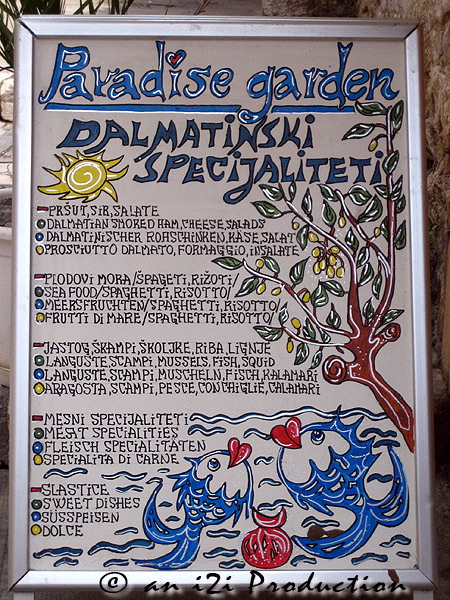 Paradise garden
DALMATINSKI
SPECIJALITETI
PRŠUT, SIR, SALATE
DALMATIAN SMOKED HAM, CHEESE, SALADS
DALMATINISCHER ROHSCHINKEN, KÄSE, SALAT
PROSCIUTTO DALMATO, FORMAGGIO, INSALATE
PLODOVI MORA/ŠPAGETI, RIŽOTI/
SEA FOOD/SPAGHETTI, RISOTTO/
MEERSFRUCHTEN/SPAGHETTI, RISOTTO/
FRUTTI DI MARE/SPAGHETTI, RISOTTO/
JASTOG, ŠKAMPI, ŠKOLJKE, RIBA, LIGNJE
LANGUSTE, SCAMPI, MUSSELS, FISH, SQUID
LANGUSTE, SCAMPI, MUSCHELN, FISCH, KALAMARI
ARAGOSTA, SCAMPI, PESCE, CONCHIGLIE, CALAMARI
MESNI SPECIJALITETI
MEAT SPECIALITIES
FLEISCH SPECIALITÄTEN
SPECIALITA DI CARNE
SLASTICE
SWEET DISHES
SÜSSPEISEN
DOLCE
© an i2i Production